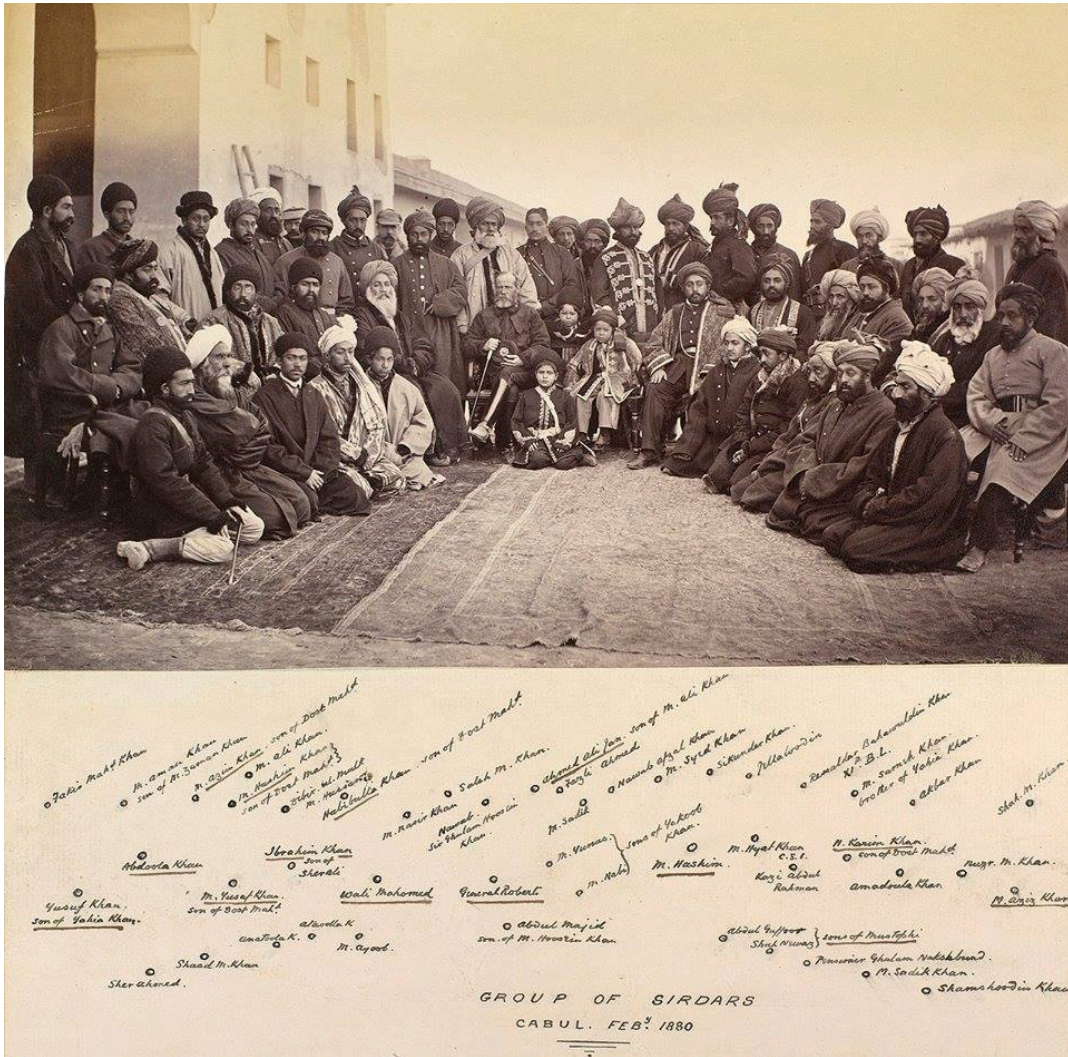 Fakir Mahd Khan
M. aman Khan
son of M. Zaman Khan
M. Azim Khan. son of Dost Mahd
M. Ali Khan.
M. Hashim Khan
son of Dost Mahd
M. Hussain
Habibulla Khan. son of Dost Mahd.
M. Nasir Khan
Salah M. Khan.
Nawab
Sir Ghulam Hoosein
Khan.
Ahmed Ali Jan. son of M. Ali Khan
Fazli Ahmed
M. Sadik
Nawab Afzal Khan
M. Syed Khan
Sikunder Khan.
Ressaldar Bahawuldin Khan
M. Surwsh Khan
brother of Yahia Khan.
Akbar Khan
Shah. M. Khan
Abdoola Khan
Ibrahim Khan
son of
Sherali
M. Yunas.
M. Nabi
sons of Yakoob
Khan.
M. Hashim.
M. Hyat Khan
C.S.I.
Kazi Abdul
Rahman
N. Karim Khan.
son of Dost Mahd
amadoula Khan
Nuzr. M. Khan.
M. Aziz Khan
Yusuf Khan.
son of Yahia Khan.
M. Yusuf Khan.
son of Dost Mahd.
Wali Mahomed
General Roberts
Abdul Majid
son of M. Hoosein Khan
ataolla K.
anatoola K.
M. Ayoob.
Abdul Guffoor
Shah Nawaz
sons of Mustophi
Pensioner Ghulam Nakshbund.
M. Sadik Khan.
Shamshoodin Khan
Shaad M. Khan
Sher ahmed.
GROUP OF SIRDARS
CABUL. FEBy. 1880